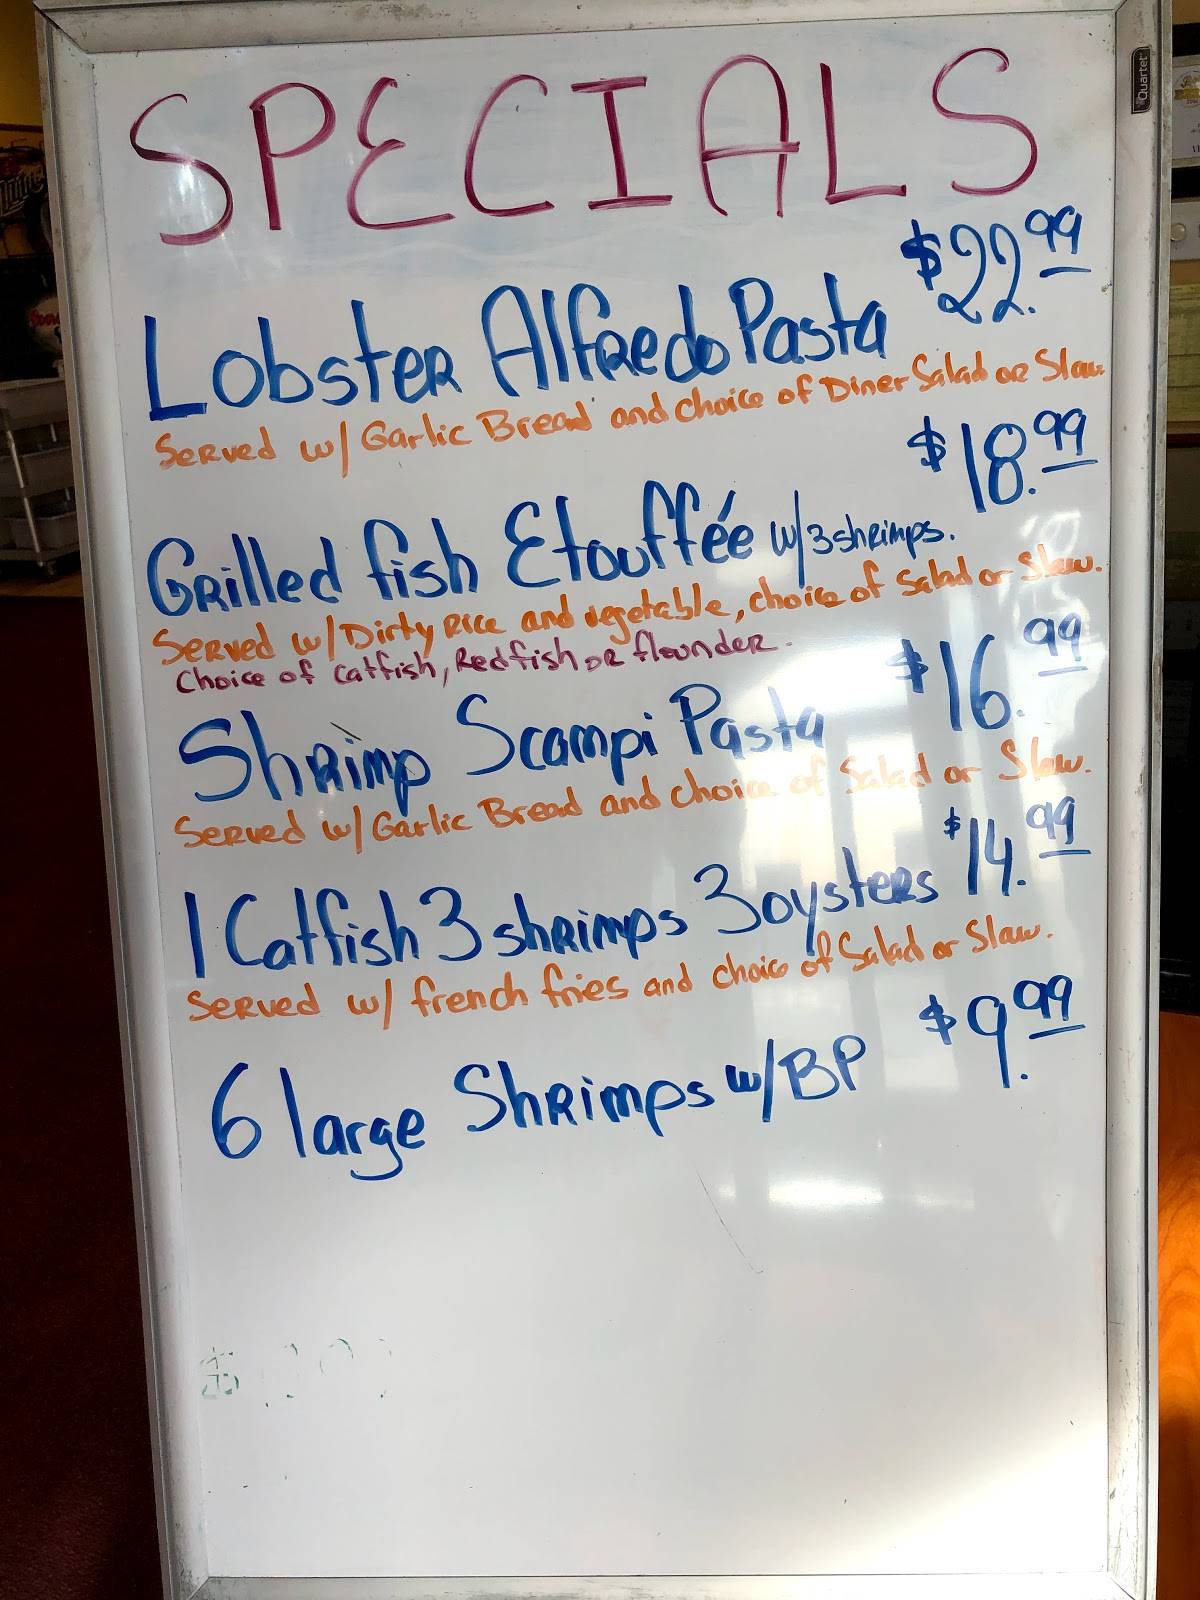 Quartet
SPECIALS
Lobster Alfredo Pasta $22.99
Served w/ Garlic Bread and choice of Diner Salad or Slaw
Grilled fish Etouffée w/3 shrimps. $18.99
Served w/ Dirty Rice and vegetable, choice of Salad or Slaw.
Choice of Catfish, Redfish or flounder.
Shrimp Scampi Pasta $16.99
Served w/ Garlic Bread and choice of Salad or Slaw.
1 Catfish 3 shrimps 3 oysters $14.99
Served w/ french fries and choice of Salad or Slaw.
6 large Shrimps w/ BP $9.99